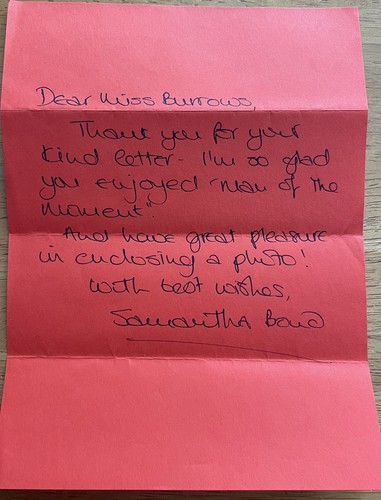 Dear Miss Burrows,
Thank you for your
kind letter - I'm so glad
you enjoyed 'Man of the
moment'.
And have great pleasure
in enclosing a photo!
With best wishes,
Samantha Bond